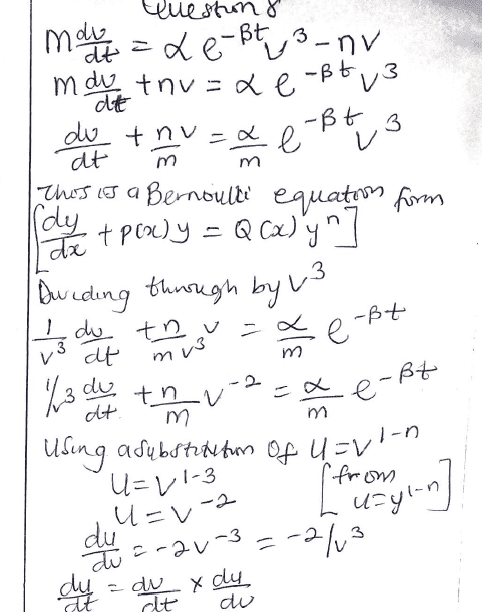 Question 8
m dv/dt = αe^-βt v^3 - nv
m dv/dt + nv = αe^-βt v^3
dv/dt + nv/m = α/m e^-βt v^3
This is a Bernoulli equation form
[dy/dx + p(x)y = Q(x)y^n]
Dividing through by v^3
1/v^3 dv/dt + n/m v/v^3 = α/m e^-βt
1/v^3 dv/dt + n/m v^-2 = α/m e^-βt
Using a substitution of U = v^1-n
U = v^1-3 [from
U = v^-2 u = y^1-n]
du/dv = -2v^-3 = -2/v^3
du/dt = dv/dt × du/dv